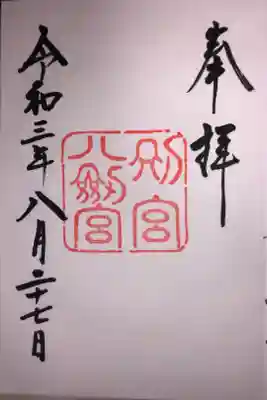 奉拝
別宮
八剣宮
令和三年八月二十七日